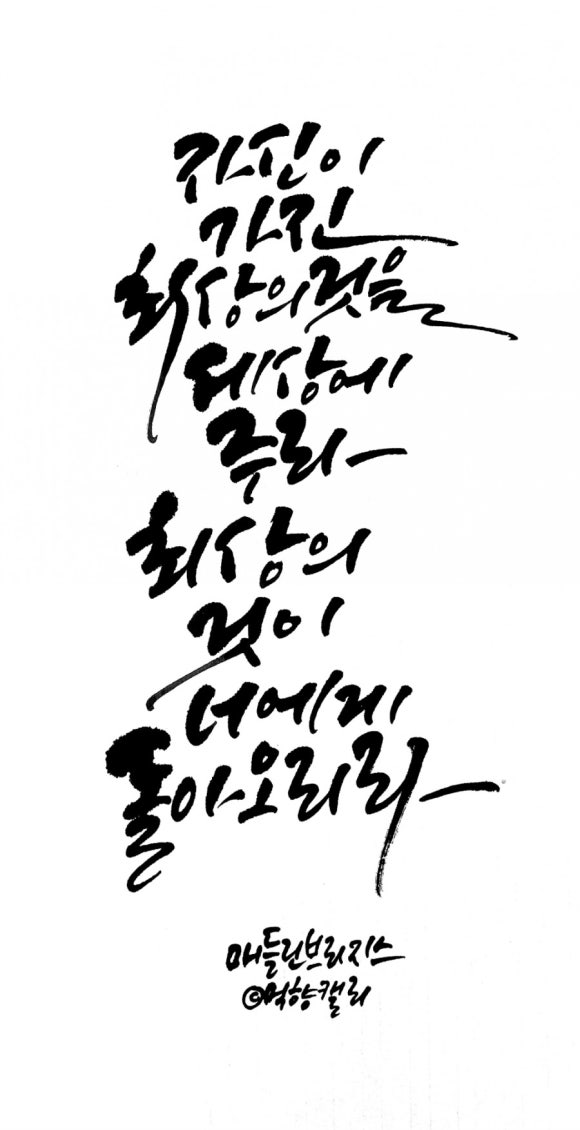 자신이
가진
최상의것을
세상에
주라
최상의
것이
너에게
돌아오리라
매들린브리지스
©먹향캘리